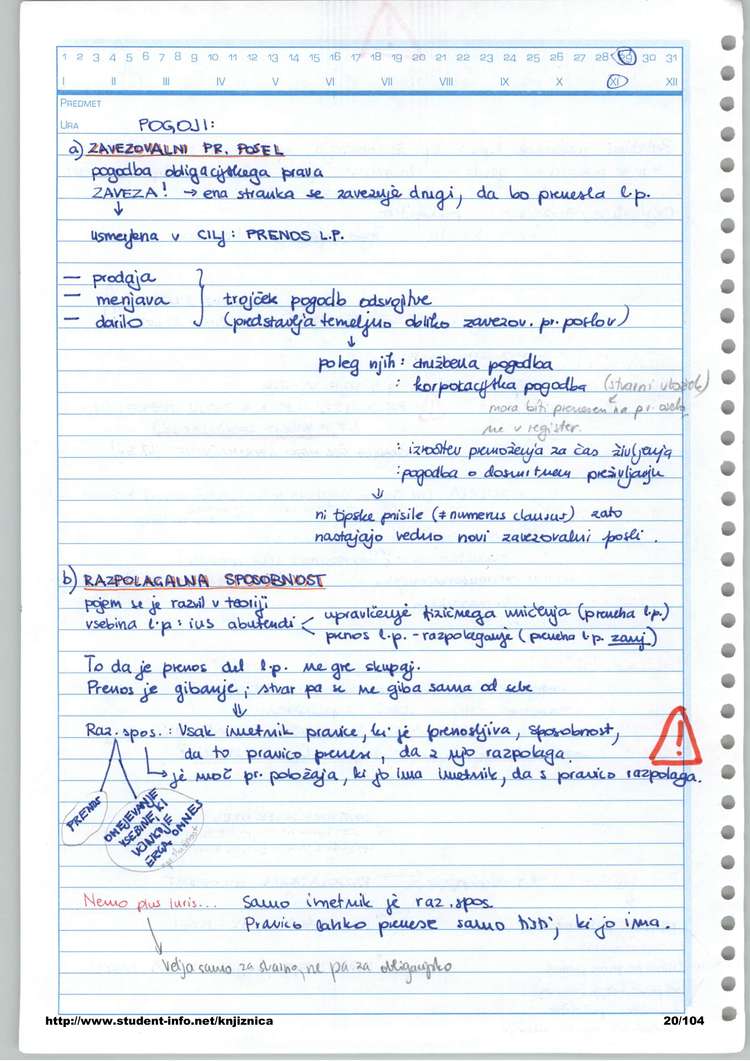 1 2 3 4 5 6 7 8 9 10 11 12 13 14 15 16 17 18 19 20 21 22 23 24 25 26 27 28 29 30 31
I II III IV V VI VII VIII IX X XI XII
PREDMET
URA POGOJI:
a) ZAVEZOVALNI PR. POSEL
pogodba obligacijskega prava
ZAVEZA! → ena stranka se zavezuje drugi, da bo prenesla l.p.
↓
usmerjena v CILJ: PRENOS L.P.
— prodaja
— menjava } trojček pogodb odsvojitve
— darilo (predstavlja temeljno obliko zavezov. pr. poslov)
↓
poleg njih: družbena pogodba
: korporacijska pogodba (stvarni vložek)
mora biti prenesen na pr. osebo
ne v register.
: izročitev premoženja za čas življenja
: pogodba o dosmrtnem preživljanju
↓
ni tipske prisile (≠ numerus clausus) zato
nastajajo vedno novi zavezovalni posli.
b) RAZPOLAGALNA SPOSOBNOST
pojem se je razvil v teoriji
vsebina l.p: ius abutendi < upravičenje fizičnega uničenja (preneha l.p.)
prenos l.p. - razpolaganje (preneha l.p. zanj)
To da je prenos del l.p. ne gre skupaj.
Prenos je gibanje; stvar pa se ne giba sama od sebe
↓
Raz. spos.: Vsak imetnik pravice, ki je prenosljiva, sposobnost,
da to pravico prenese, da z njo razpolaga.
↳ je moč pr. položaja, ki jo ima imetnik, da s pravico razpolaga.
!
PRENOS
OMEJEVANJE
VSEBINE KI
UČINKUJE
ERGA OMNES
Nemo plus iuris... Samo imetnik je raz. spos.
Pravico lahko prenese samo tisti, ki jo ima.
Velja samo za stvarno, ne pa za obligacijsko
http://www.student-info.net/knjiznica 20/104